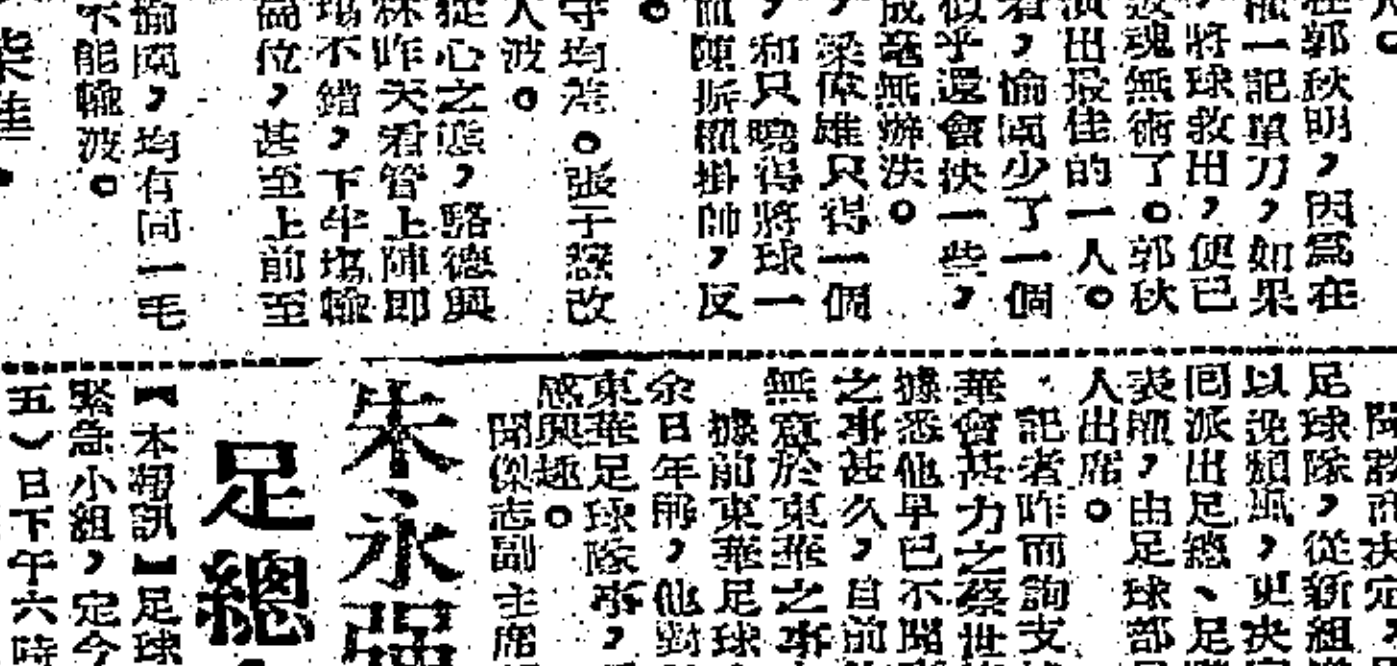 在郭秋明，因爲在
權一記單刀，如果
，將球救出，便已
設魂無術了。郭秋
演出最佳的一人。
看，愉園少了一個
似乎還會快一些，
成毫無辦法。
，梁偉雄只得一個
，和只曉得將球一
而陳振權掛帥，反
。
守均差。張子慧改
人波。
從心之態，駱德興
林昨天看管上陣即
場不錯，下半場輸
高位，甚至上前至
愉園，均有同一毛
不能輸波。
聞將商決定，
足球隊，從新組
以挽頹風，更決定
同派出足總、足
表權，由足球部
人出席。
記者昨而詢支
華會甚力之蔡世
據悉他早已不聞
之事甚久，目前
無意於東華之事
據前東華足球
余日年稱，他對
東華足球隊事，
感興趣。
聞傑志副主席
朱永強
足總
【本報訊】足球
緊急小組，定今
五）日下午六時